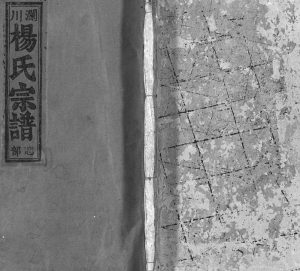 瀾川
楊氏宗譜
部